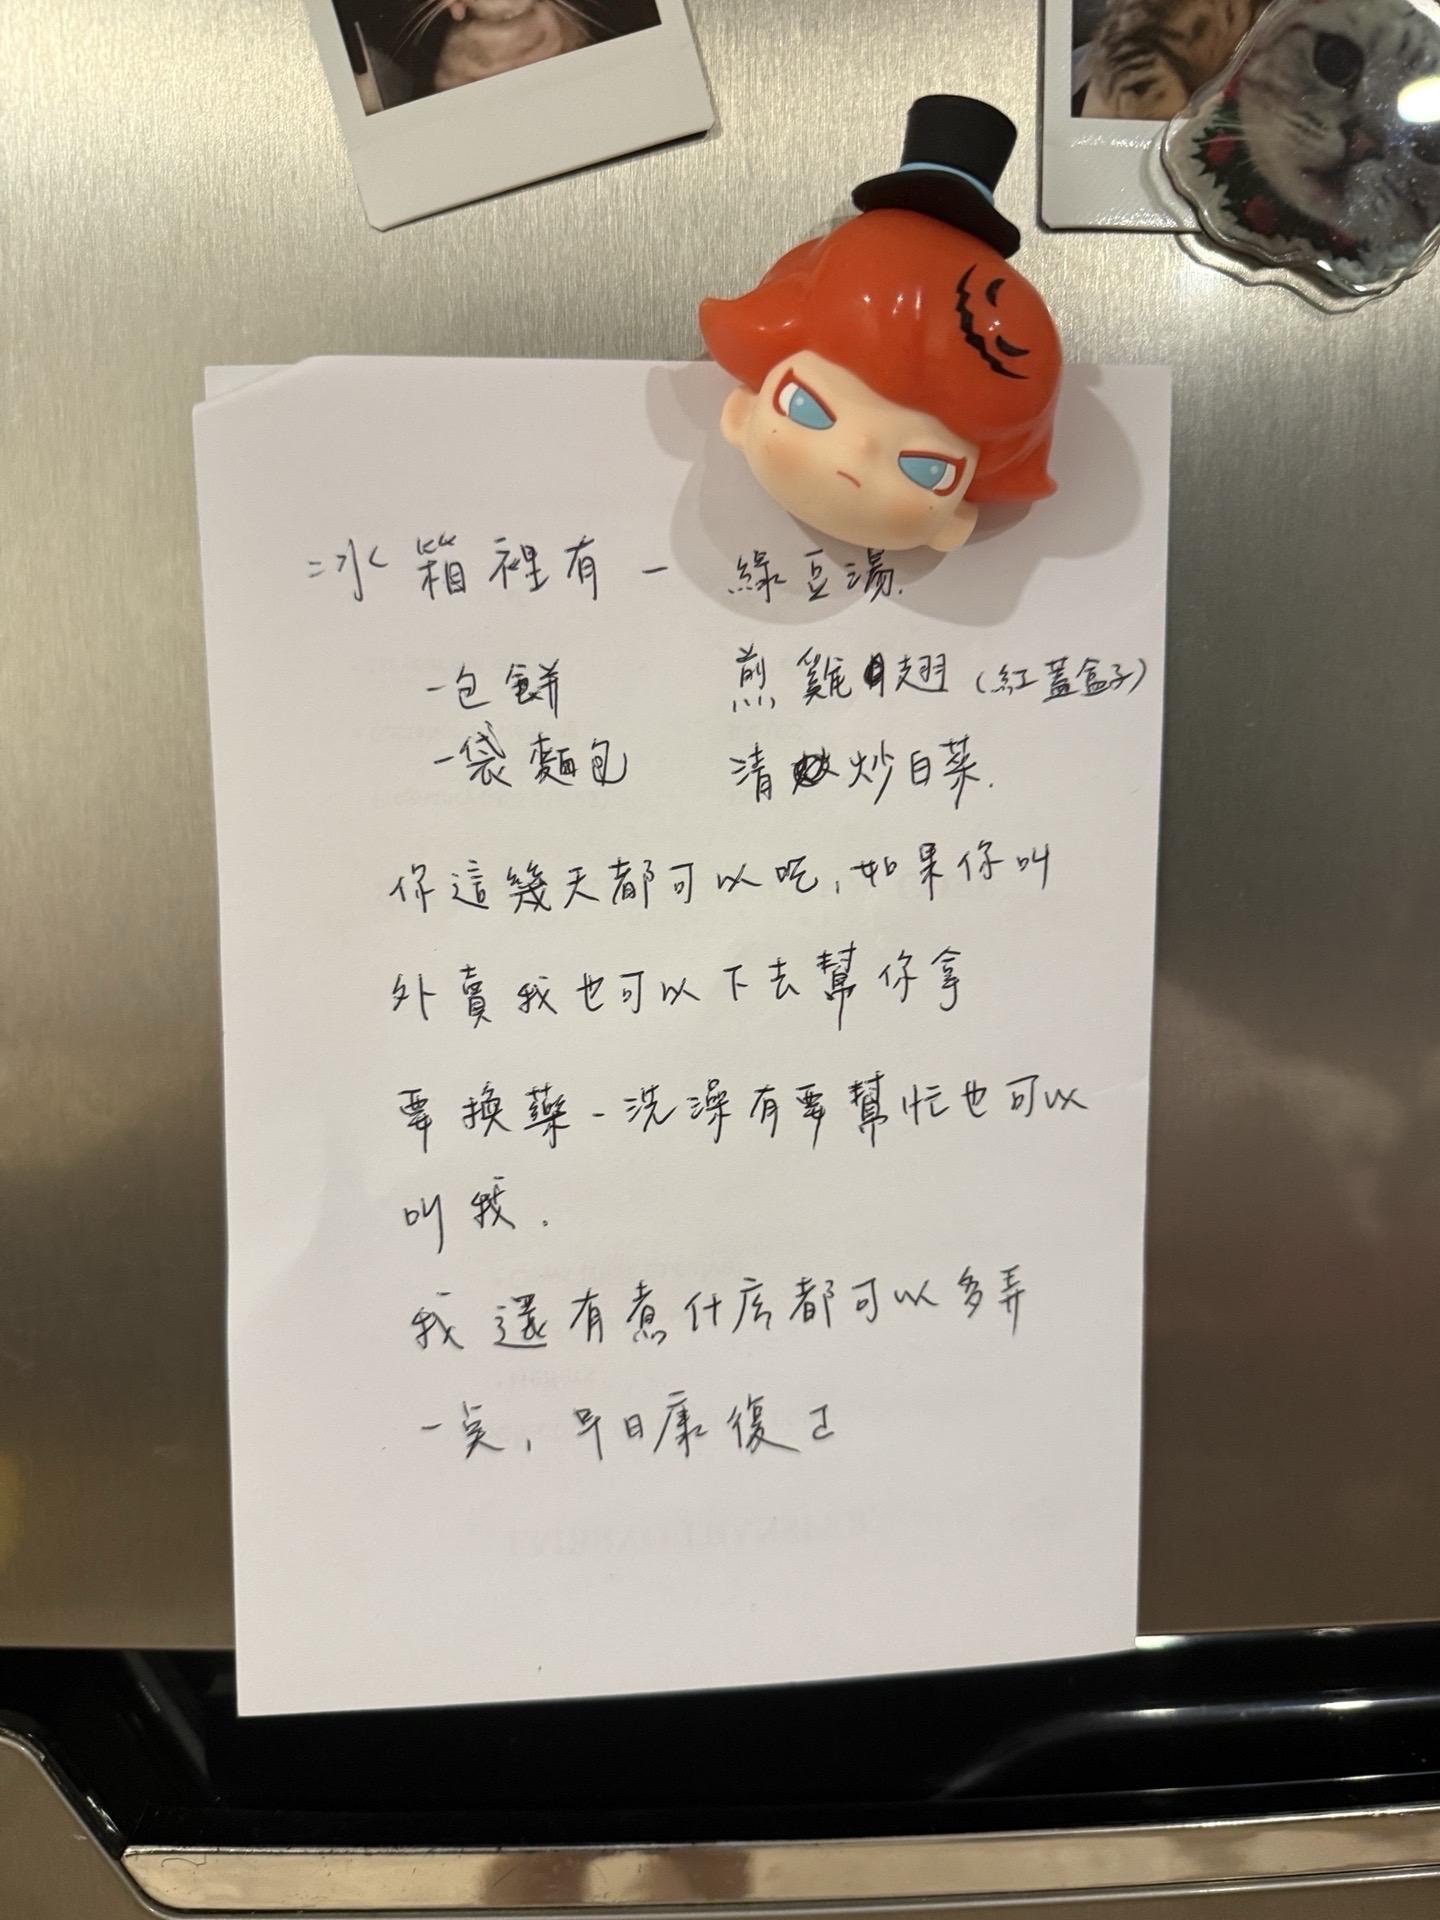 冰箱裡有 - 綠豆湯.
一包餅 煎雞翅 (紅蓋盒子)
一袋麵包 清炒白菜.
你這幾天都可以吃,如果你叫
外賣我也可以下去幫你拿
要換藥、洗澡有要幫忙也可以
叫我.
我還有煮什麼都可以多弄
一点,早日康復